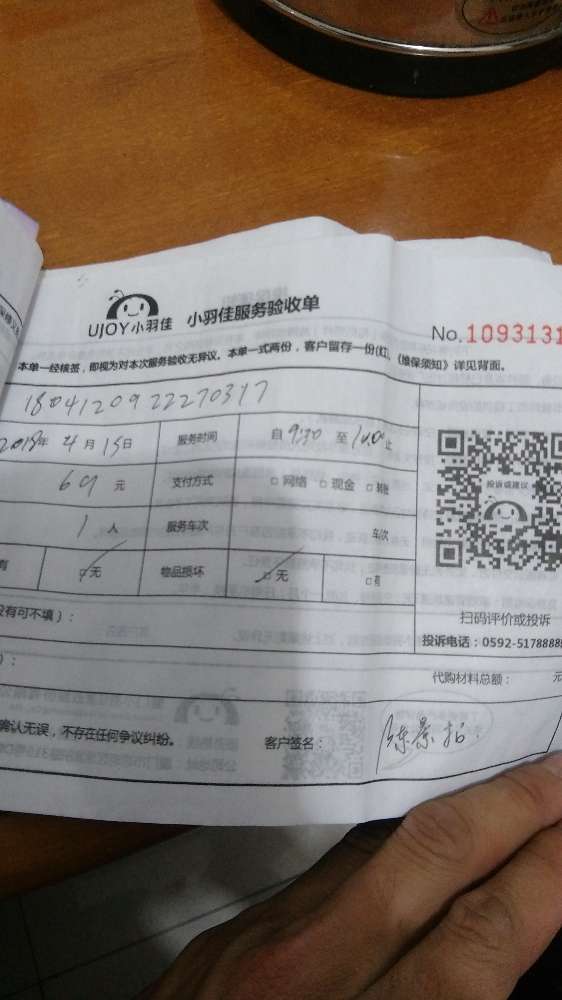 UJOY小羽佳 小羽佳服务验收单
No.1093131
本单一经核签，即视为对本次服务验收无异议。本单一式两份，客户留存一份(红)。《维保须知》详见背面。
1804120922270317
2018年 4月 15日 服务时间 自 9:30 至 止
69 元 支付方式 □ 网络 □ 现金 □
1 人 服务车次 车次
投诉或建议
有 □无 物品损坏 □无 □有
扫码评价或投诉
没有可不填）：
投诉电话：0592-5178888
）：
代购材料总额： 元
确认无误，不存在任何争议纠纷。 客户签名： 陈景